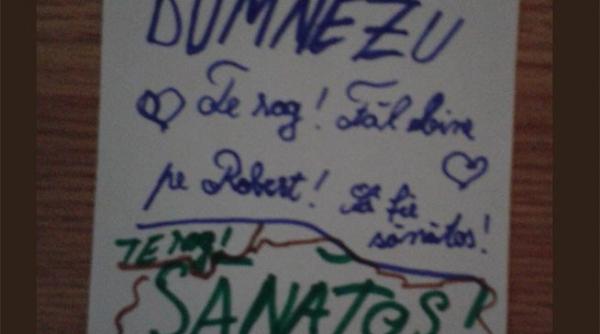 DUMNEZU
Te rog! Făl bine
pe Robert! Să fie
sănătos!
TE rog!
SANATOS